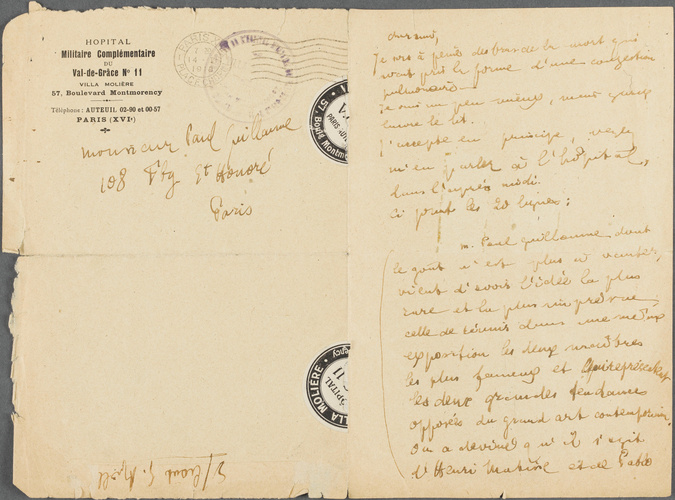 HOPITAL
Militaire Complémentaire
DU
Val-de-Grâce Nº 11
VILLA MOLIÈRE
57, Boulevard Montmorency
Téléphone: AUTEUIL 02-90 et 00-57
PARIS (XVIᵉ)
Monsieur Paul Guillaume
108 Fbg St Honoré
Paris
57, Boulᵈ Montmorency
VILLA MOLIÈRE
HÔPITAL
11
cher ami,
Je sors à peine des bras de la mort qui
avait pris la forme d'une congestion
pulmonaire
Je suis un peu mieux, mais garde
encore le lit.
J'accepte en principe, venez
m'en parler à l'hôpital,
dans l'après midi.
Ci joint les 20 lignes:
M. Paul Guillaume dont
le goût n'est plus à vanter,
vient d'avoir l'idée la plus
rare et la plus imprévue
celle de réunir dans une même
exposition les deux membres
les plus fameux et qui représentent
les deux grandes tendances
opposées du grand art contemporain.
On a deviné qu'il s'agit
d'Henri Matisse et de Pablo